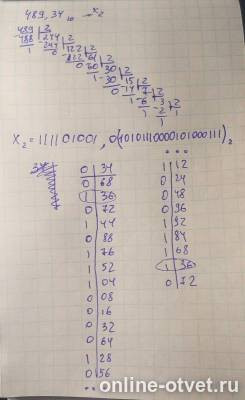 489,34₁₀ → x₂
489 | 2
488 | 244 | 2
1 244 | 122 | 2
0 122 | 61 | 2
0 60 | 30 | 2
1 30 | 15 | 2
0 14 | 7 | 2
1 6 | 3 | 2
1 2 | 1
1
X₂ = 111101001, 0(10101110000101000111)₂
0 | 34
0 | 68
1 | 36
0 | 72
1 | 44
0 | 88
1 | 76
1 | 52
1 | 04
0 | 08
0 | 16
0 | 32
0 | 64
1 | 28
0 | 56
...
1 | 12
0 | 24
0 | 48
0 | 96
1 | 92
1 | 84
1 | 68
1 | 36
0 | 72
online-otvet.ru